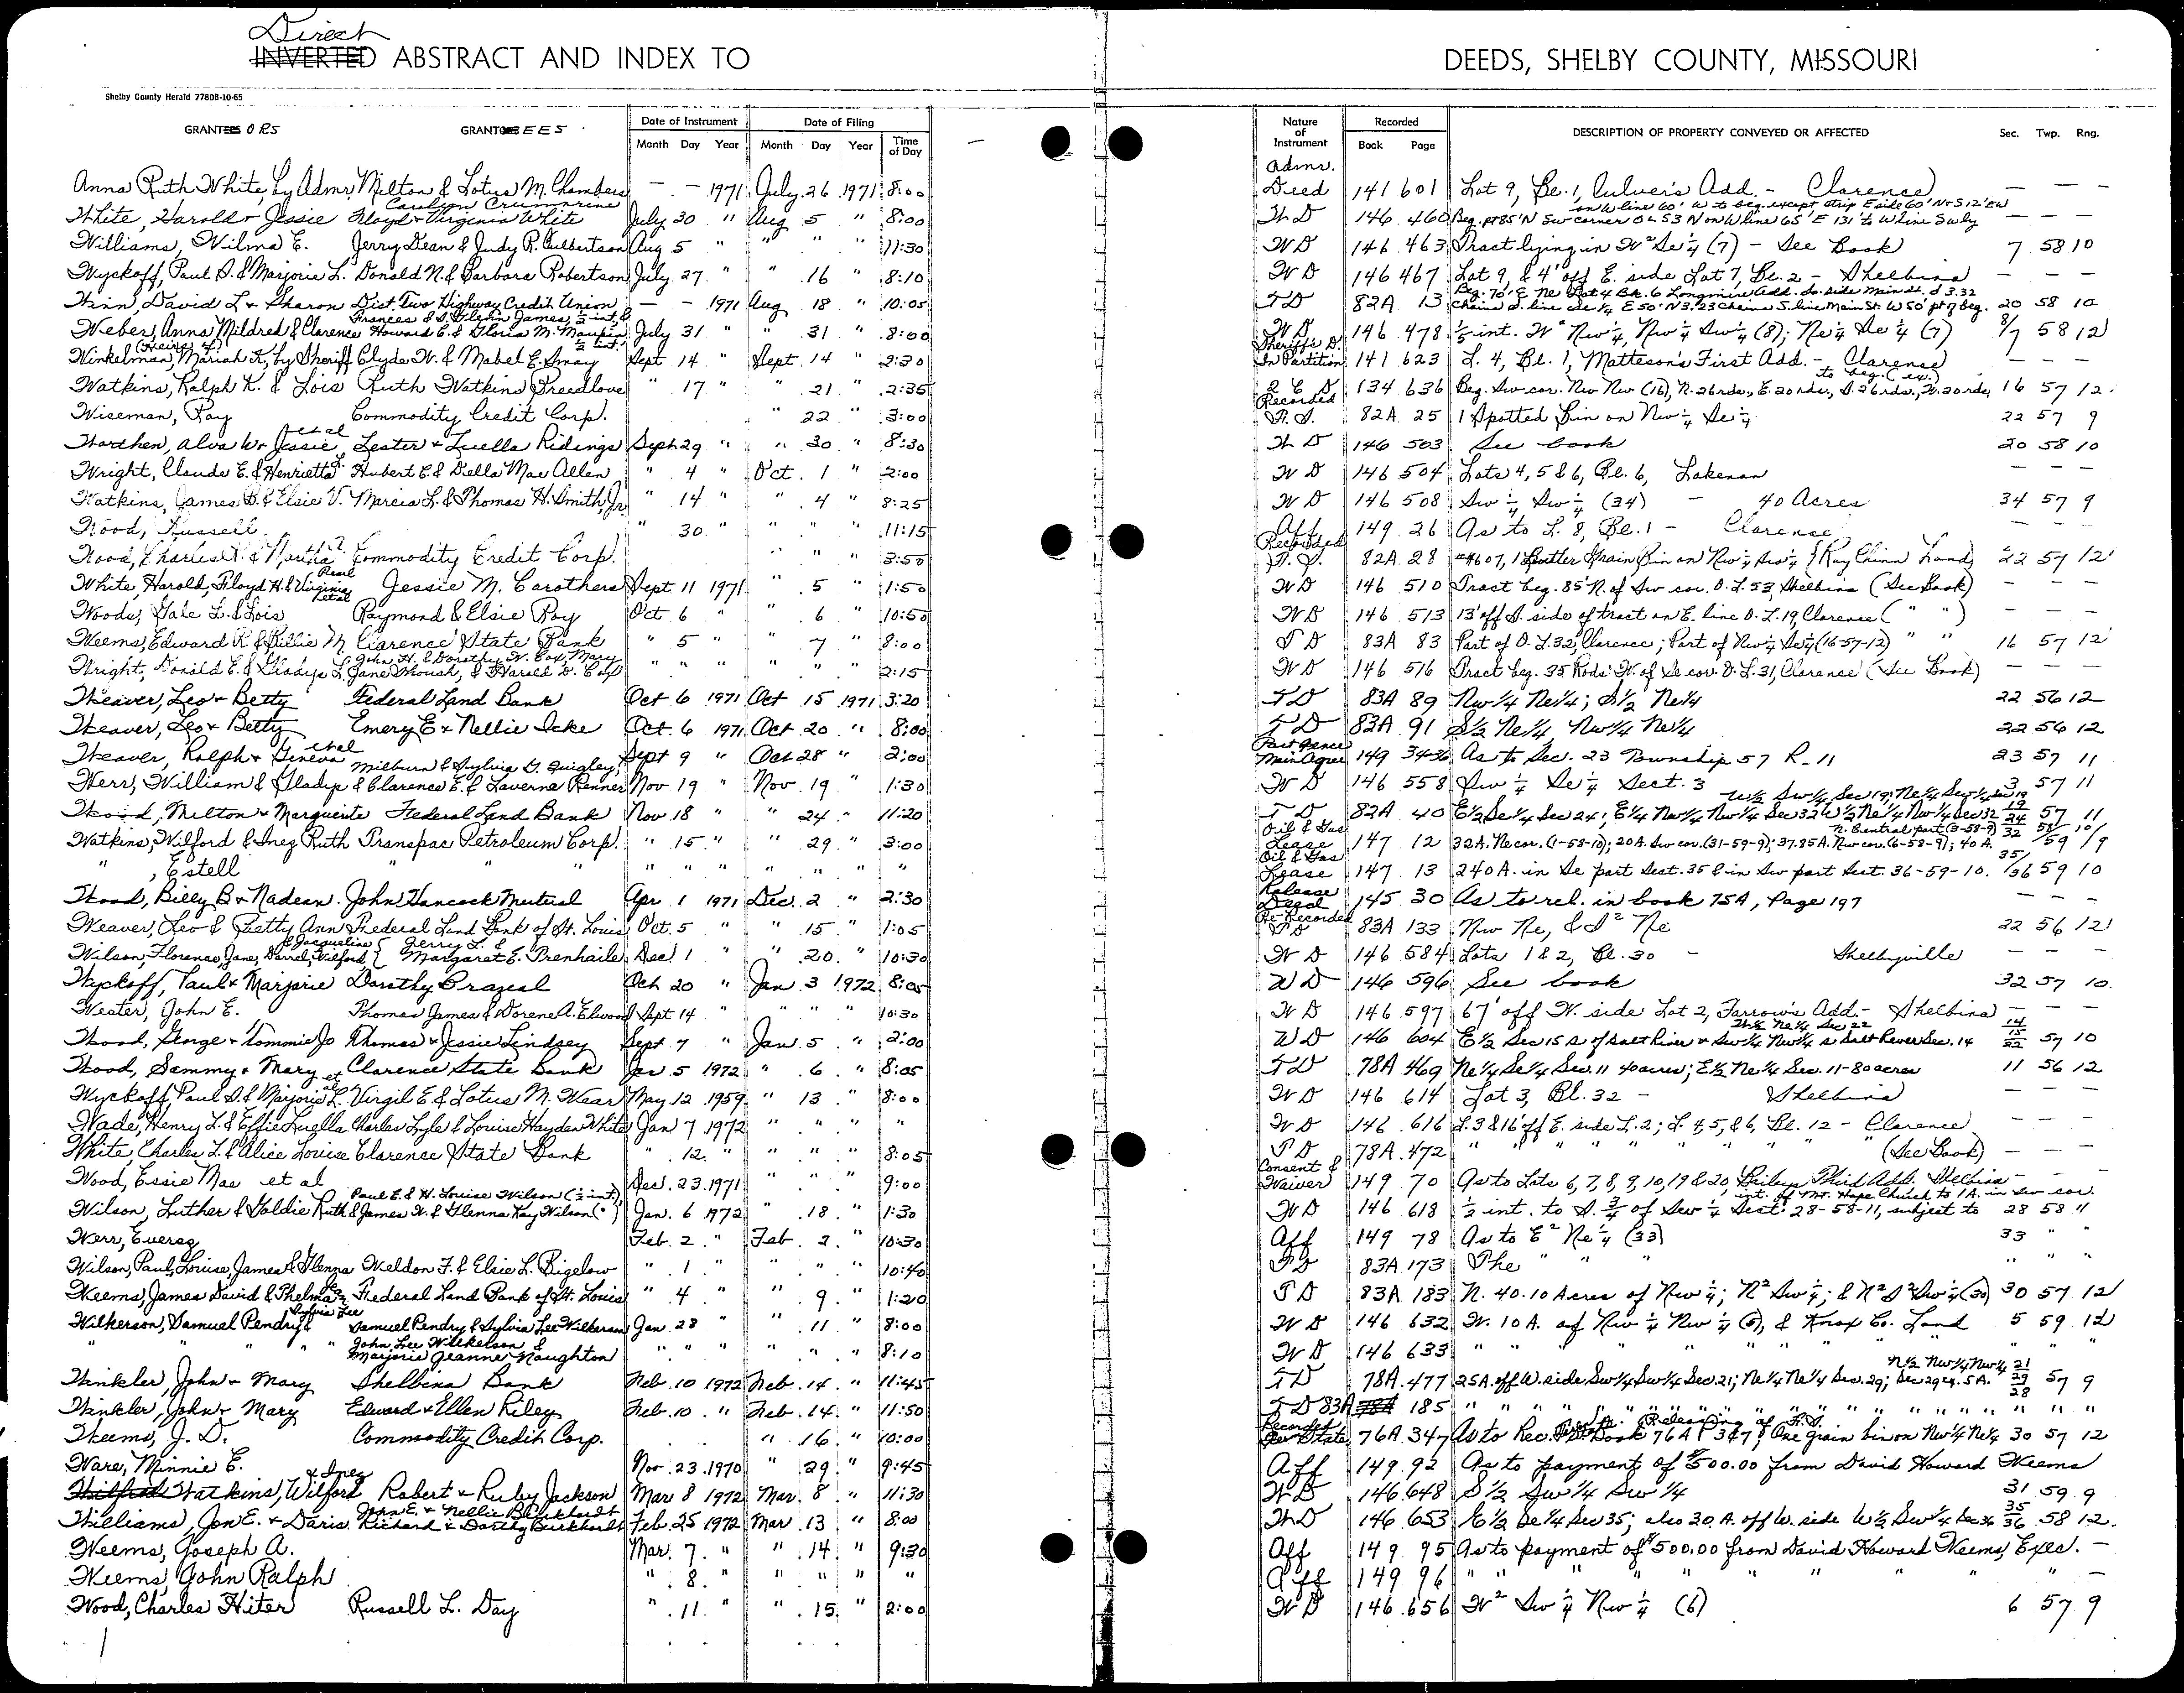 Direct
INVERTED ABSTRACT AND INDEX TO DEEDS, SHELBY COUNTY, MISSOURI
Shelby County Herald 7780B-10-65
GRANTEES ORS GRANTOREES Date of Instrument Date of Filing Nature of Instrument Recorded DESCRIPTION OF PROPERTY CONVEYED OR AFFECTED Sec. Twp. Rng.
Month Day Year Month Day Year Time of Day Book Page
Anna Ruth White, by Admr. Milton & Lotus M. Chambers — — 1971 July 26 1971 8:00 Admr. Deed 141 601 Lot 9, Bl. 1, Culver's Add. - Clarence — — —
White, Harold & Jessie Carolyn Crummrine Floyd & Virginia White July 30 " Aug 5 " 8:00 W D 146 460 Beg. pt 85' N Sw corner O L 53 N on W line 65' E 131' to W line Swly on W line 60' W to beg. except strip E side 60' N+S 12' EW
Williams, Wilma E. Jerry Dean & Judy R. Culbertson Aug 5 " " " " 11:30 W D 146 463 Tract lying in W² Se¼ (7) - See Book 7 58 10
Wyckoff, Paul D. & Marjorie L. Donald N. & Barbara Robertson July 27 " " 16 " 8:10 W D 146 467 Lot 9, & 4' off E. side Lot 7, Bl. 2 - Shelbina — — —
Win, David L & Sharon Dist Two Highway Credit Union — — 1971 Aug 18 " 10:05 T D 82A 13 Beg. 70' E Ne Lot 4 Bk. 6 Longmire Add. So. side Main St. d 3.32 Chains S. line Se ¼ E 50' N 3.23 Chains S. line Main St W 50' pt of beg. 20 58 10
Weber, Anna Mildred & Clarence Frances & S. Glenn James, ½ int. & Howard E. & Gloria M. Maupin, ½ int. July 31 " " 31 " 8:00 W D 146 478 ⅕ int. W² Nw¼, Nw¼ Sw¼ (8); Ne¼ Se¼ (7) 8/7 58 12
Winkelman, Mariah K, (Heirs of) by Sheriff Clyde W. & Mabel E. Smay Sept 14 " Sept 14 " 2:30 Sheriff's D. In Partition 141 623 L. 4, Bl. 1, Matteson's First Add. - Clarence — — —
Watkins, Ralph K. & Lois Ruth Watkins Breedlove " 17 " " 21 " 2:35 Q C D 134 636 Beg. Sw cor. Nw Nw (16), N. 26 rds., E. 20 rds., S. 26 rds., W. 20 rds. to beg. (ex.) 16 57 12
Wiseman, Roy Commodity Credit Corp. " 22 " 3:00 Recorded F. S. 82A 25 1 Spotted Bin on Nw¼ Se¼ 22 57 9
Worthen, Alva W & Jessie et al Lester & Luella Ridings Sept 29 " " 30 " 8:30 W D 146 503 See book 20 58 10
Wright, Claude E. & Henrietta L. Hubert E. & Della Mae Allen " 4 " Oct. 1 " 2:00 W D 146 504 Lots 4, 5 & 6, Bl. 6, Lakenan — — —
Watkins, James B. & Elsie V. Marcia L. & Thomas H. Smith, Jr. " 14 " " 4 " 8:25 W D 146 508 Sw¼ Sw¼ (34) - 40 Acres 34 57 9
Wood, Russell " 30 " " " " 11:15 Aff 149 26 As to L. 8, Bl. 1 - Clarence — —
Wood, Charles R. & Martha A. Commodity Credit Corp. " " " 3:50 Recorded F. S. 82A 28 #4607, 1 Butler Grain Bin on Nw¼ Sw¼ (Ray Chinn Land) 22 57 12
White, Harold, Floyd H. & Virginia Pearl et al Jessie M. Carothers Sept 11 1971 " 5 " 1:50 W D 146 510 Tract beg. 85' N. of Sw cor. O. L. 53, Shelbina (See Book) — — —
Woods, Gale L. & Lois Raymond & Elsie Roy Oct 6 " " 6 " 10:50 W D 146 513 13' off S. side of tract on E. line O. L. 19, Clarence ( " " ) — — —
Weems, Edward R. & Billie M. Clarence State Bank " 5 " " 7 " 8:00 T D 83A 83 Part of O. L. 32, Clarence; Part of Nw¼ Se¼ (16-57-12) " " 16 57 12
Wright, Donald E. & Gladys L. John H. & Dorothy W. Cox, Mary Jane Shoush, & Harold D. Cox " " " " " " 2:15 W D 146 516 Tract beg. 35 Rods W. of Se cor. O. L. 31, Clarence (See Book) — — —
Weaver, Leo & Betty Federal Land Bank Oct 6 1971 Oct 15 1971 3:20 T D 83A 89 Nw¼ Ne¼; S½ Ne¼ 22 56 12
Weaver, Leo & Betty Emery E & Nellie Icke Oct. 6 1971 Oct. 20 " 8:00 T D 83A 91 S½ Ne¼, Nw¼ Ne¼ 22 56 12
Weaver, Ralph & Geneva et al Sept 9 " Oct 28 " 2:00 Part Fence Main Agree 149 34-36 As to Sec. 23 Township 57 R. 11 23 57 11
Werr, William & Gladys Milburn & Sylvia G. Quigley, & Clarence E. & Laverna Renner Nov 19 " Nov. 19 " 1:30 W D 146 558 Sw¼ Se¼ Sect. 3 3 57 11
Wood, Milton & Marguerite Federal Land Bank Nov 18 " " 24 " 11:20 T D 82A 40 E½ Se¼ Sec 24; E¼ Nw¼ Nw¼ Sec 32 W½ Ne¼ Nw¼ Sec 32 W½ Sw¼ Sec 19; Ne¼ Sw¼ Sec 19 19/24/32 57 11
Watkins, Wilford & Inez Ruth Transpac Petroleum Corp. " 15 " " 29 " 3:00 Oil & Gas Lease 147 12 32A. Ne cor. (1-58-10); 20A. Sw cor. (31-59-9); 37.85A. Nw cor. (6-58-9); 40 A. N. Central part (3-58-9) 58/59 10/9
" , Estell " " " " " " " " Oil & Gas Lease 147 13 240 A. in Se part Sect. 35 & in Sw part Sect. 36-59-10. 35/36 59 10
Wood, Billy B & Nadean John Hancock Mutual Apr 1 1971 Dec. 2 " 2:30 Release Deed 145 30 As to rel. in book 75A, Page 197 — —
Weaver, Leo & Betty Ann Federal Land Bank of St. Louis Oct. 5 " " 15 " 1:05 Re-Recorded T D 83A 133 Nw Ne, & S² Ne 22 56 12
Wilson, Florence, Jane, Darrel, Wilford & Jacqueline Jerry L. & Margaret E. Brenhaile Dec 1 " " 20 " 10:30 W D 146 584 Lots 1 & 2, Bl. 30 - Shelbyville — — —
Wyckoff, Paul & Marjorie Dorothy Brazeal Oct 20 " Jan 3 1972 8:05 W D 146 596 See book 32 57 10
Wester, John E. Thomas James & Dorene A. Elwood Sept 14 " " " " 10:30 W D 146 597 67' off W. side Lot 2, Farrow's Add. - Shelbina — — —
Wood, George & Tommie Jo Thomas & Jessie Lindsey Sept 7 " Jan. 5 " 2:00 W D 146 604 E½ Sec 15 S of Salt River & Sw¼ Nw¼ S Salt River Sec. 14 W½ Ne¼ Sec 22 14/15/22 57 10
Wood, Sammy & Mary et al Clarence State Bank Jan 5 1972 " 6 " 8:05 T D 78A 469 Ne¼ Se¼ Sec. 11 40 acres; E½ Ne¼ Sec. 11-80 acres 11 56 12
Wyckoff, Paul D. & Marjorie L. Virgil E. & Lotus M. Wear May 12 1959 " 13 " 8:00 W D 146 614 Lot 3, Bl. 32 - Shelbina — — —
Wade, Henry L. & Effie Luella Charles Lyle & Louise Hayden White Jan 7 1972 " " " " W D 146 616 L. 3 & 16' off E. side L. 2; L. 4, 5, & 6, Bl. 12 - Clarence — — —
White, Charles L. & Alice Louise Clarence State Bank " 12 " " " " 8:05 T D 78A 472 " " " " " " " (See Book) — —
Wood, Essie Mae et al Dec. 23 1971 " " " 9:00 Consent & Waiver 149 70 As to Lots 6, 7, 8, 9, 10, 19 & 20, Baileys Third Add. Shelbina — —
Wilson, Luther & Goldie Ruth Paul E. & H. Louise Wilson (½ int) & James W. & Glenna Kay Wilson ( " ) Jan. 6 1972 " 18 " 1:30 W D 146 618 ½ int. to S. ¾ of Sw¼ Sect. 28-58-11, subject to int. of Mt. Hope Church to 1A. in Sw cor. 28 58 11
Werr, Everag Feb. 2 " Feb. 2 " 10:30 Aff 149 78 As to E² Ne¼ (33) 33 " "
Wilson, Paul, Louise, James & Glenna Weldon F. & Elsie L. Bigelow " 1 " " " " 10:40 T D 83A 173 The " " " " "
Weems, James David & Thelma Federal Land Bank of St. Louis " 4 " " 9 " 1:20 T D 83A 183 N. 40.10 Acres of Nw¼; N² Sw¼; & N² S² Sw¼ (30) 30 57 12
Wilkerson, Samuel Pendry & Sylvia Lee Samuel Pendry & Sylvia Lee Wilkerson Jan. 28 " " 11 " 8:00 W D 146 632 W. 10 A. of Nw¼ Nw¼ (5), & Knox Co. Land 5 59 12
" " " " John Lee Wilkelson & Marjorie Jeanne Naughton " " " " " " 8:10 W D 146 633 " " " " " " " "
Winkler, John & Mary Shelbina Bank Feb. 10 1972 Feb. 14 " 11:45 T D 78A 477 25A. off W. side Sw¼ Sw¼ Sec. 21; Ne¼ Ne¼ Sec. 29; N½ Nw¼ Nw¼ Sec 29 eq. 5 A. 21/29/28 57 9
Winkler, John & Mary Edward & Ellen Riley Feb. 10 " Feb. 14 " 11:50 T D 83A 78A 185 " " " " " " " " " " " " "
Weems, J. D. Commodity Credit Corp. " 16 " 10:00 76A 347 As to Rec. Book 76A P 347; One grain bin on Nw¼ Ne¼ 30 57 12
Ware, Minnie E. Nov. 23 1970 " 29 " 9:45 Aff 149 92 As to payment of $500.00 from David Howard Weems
Wilfred Watkins, Wilford & Inez Robert & Ruby Jackson Mar 8 1972 Mar. 8 " 11:30 W D 146 648 S½ Sw¼ Sw¼ 31 59 9
Williams, Jon E. & Doris John E. & Nellie B. Burkhardt Richard & Dorthy Burkhardt Feb. 25 1972 Mar 13 " 8:00 W D 146 653 E½ Se¼ Sec 35; also 30 A. off W. side W½ Sw¼ Sec 36 35/36 58 12
Weems, Joseph A. Mar. 7 " " 14 " 9:30 Aff 149 95 As to payment of $500.00 from David Howard Weems, Exec. —
Weems, John Ralph " 8 " " " " " Aff 149 96 " " " " " " " " —
Wood, Charles Hiter Russell L. Day " 11 " " 15 " 2:00 W D 146 656 W² Sw¼ Nw¼ (6) 6 57 9